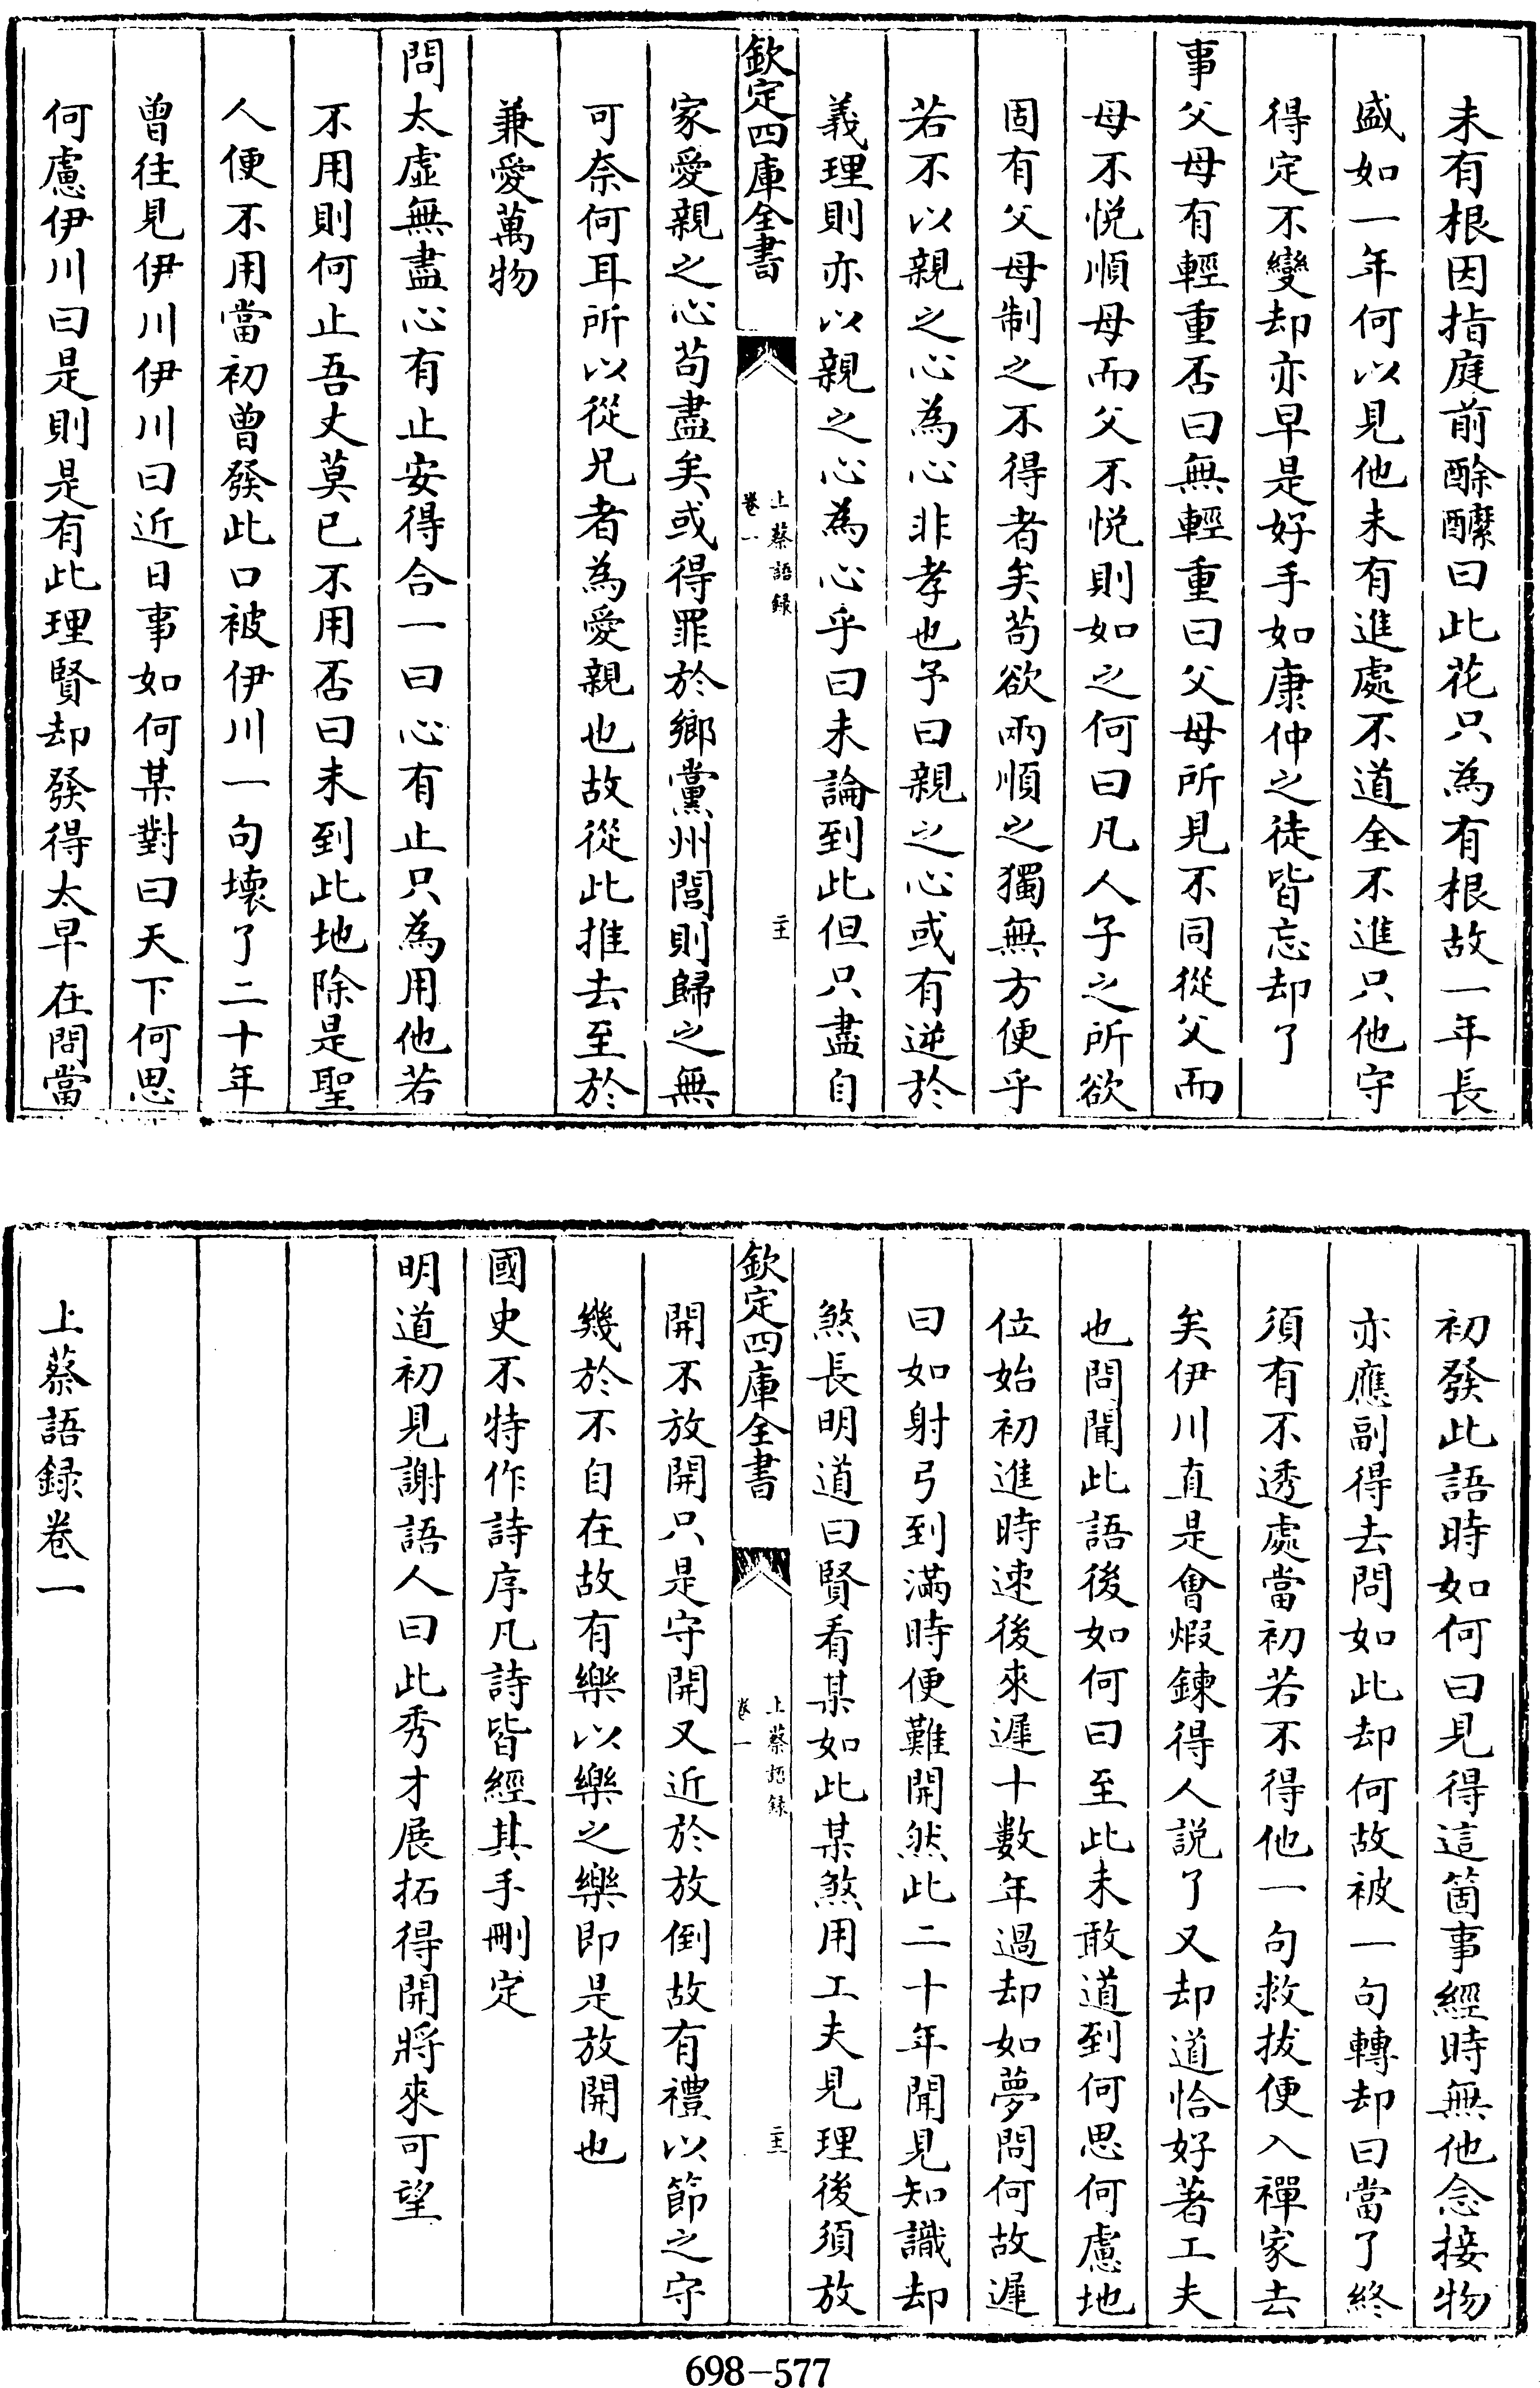 未有根因指庭前酴醿曰此花只為有根故一年長
盛如一年何以見他未有進處不道全不進只他守
得定不變却亦早是好手如康仲之徒皆忘却了
事父母有輕重否曰無輕重曰父母所見不同從父而
母不悦順母而父不悦則如之何曰凡人子之所欲
固有父母制之不得者矣苟欲兩順之獨無方便乎
若不以親之心為心非孝也予曰親之心或有逆於
義理則亦以親之心為心乎曰未論到此但只盡自
欽定四庫全書
上蔡語録
卷一
家愛親之心苟盡矣或得罪於鄉黨州閭則歸之無
可奈何耳所以從兄者為愛親也故從此推去至於
兼愛萬物
問太虛無盡心有止安得合一曰心有止只為用他若
不用則何止吾丈莫已不用否曰未到此地除是聖
人便不用當初曾發此口被伊川一句壞了二十年
曾往見伊川伊川曰近日事如何某對曰天下何思
何慮伊川曰是則是有此理賢却發得太早在問當
初發此語時如何曰見得這箇事經時無他念接物
亦應副得去問如此却何故被一句轉却曰當了終
須有不透處當初若不得他一句救拔便入禪家去
矣伊川直是會煅鍊得人説了又却道恰好著工夫
也問聞此語後如何曰至此未敢道到何思何慮地
位始初進時速後來遲十數年過却如夢問何故遲
曰如射弓到滿時便難開然此二十年聞見知識却
煞長明道曰賢看某如此某煞用工夫見理後須放
欽定四庫全書
上蔡語録
卷一
開不放開只是守開又近於放倒故有禮以節之守
幾於不自在故有樂以樂之樂即是放開也
國史不特作詩序凡詩皆經其手刪定
明道初見謝語人曰此秀才展拓得開將來可望
上蔡語録卷一
698-577